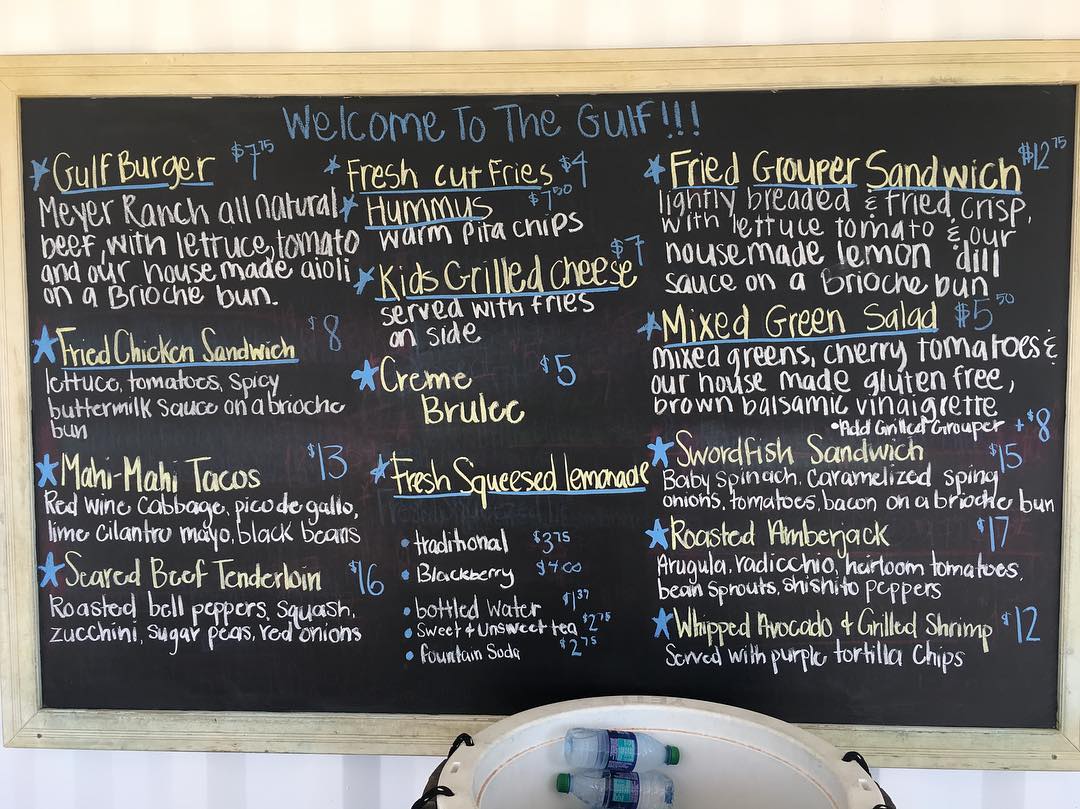 Welcome To The Gulf!!!
Gulf Burger $7.75
Meyer Ranch all natural
beef, with lettuce, tomato
and our house made aioli
on a Brioche bun.
Fried Chicken Sandwich $8
lettuce, tomatoes, spicy
buttermilk sauce on a brioche
bun
Mahi-Mahi Tacos $13
Red wine Cabbage, pico de gallo,
lime cilantro mayo, black beans
Seared Beef Tenderloin $16
Roasted bell peppers, squash,
zucchini, sugar peas, red onions
Fresh cut Fries $4
Hummus $7.50
warm pita chips
Kids Grilled cheese $7
served with fries
on side
Creme $5
Brulee
Fresh Squeesed lemonade
traditional $3.75
Blackberry $4.00
bottled water $1.39
Sweet & Unsweet tea $2.75
fountain Soda $2.75
Fried Grouper Sandwich $12.75
lightly breaded & fried, crisp,
with lettuce tomato & our
housemade lemon dill
sauce on a Brioche bun
Mixed Green Salad $5.50
mixed greens, cherry tomatoes &
our house made gluten free,
brown balsamic vinaigrette
•Add Grilled Grouper +$8
Swordfish Sandwich $15
Baby spinach, caramelized spring
onions, tomatoes, bacon on a brioche bun
Roasted Amberjack $17
Arugula, radicchio, heirloom tomatoes,
bean sprouts, shishito peppers
Whipped Avocado & Grilled Shrimp $12
Served with purple tortilla Chips